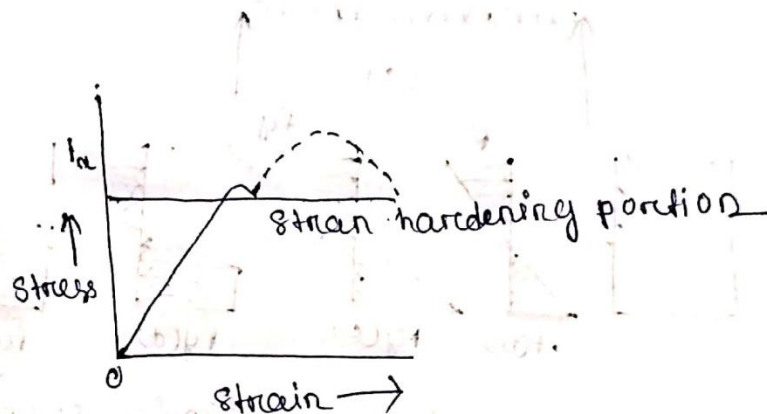 stran hardening portion
Stress
O
Strain